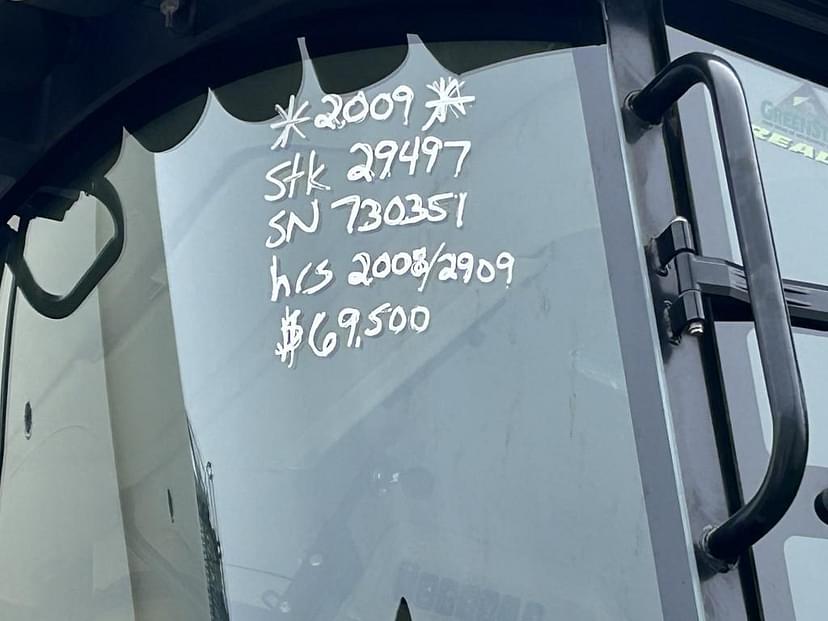 *2009*
Stk 29497
SN 730351
hrs 2008/2909
$69,500